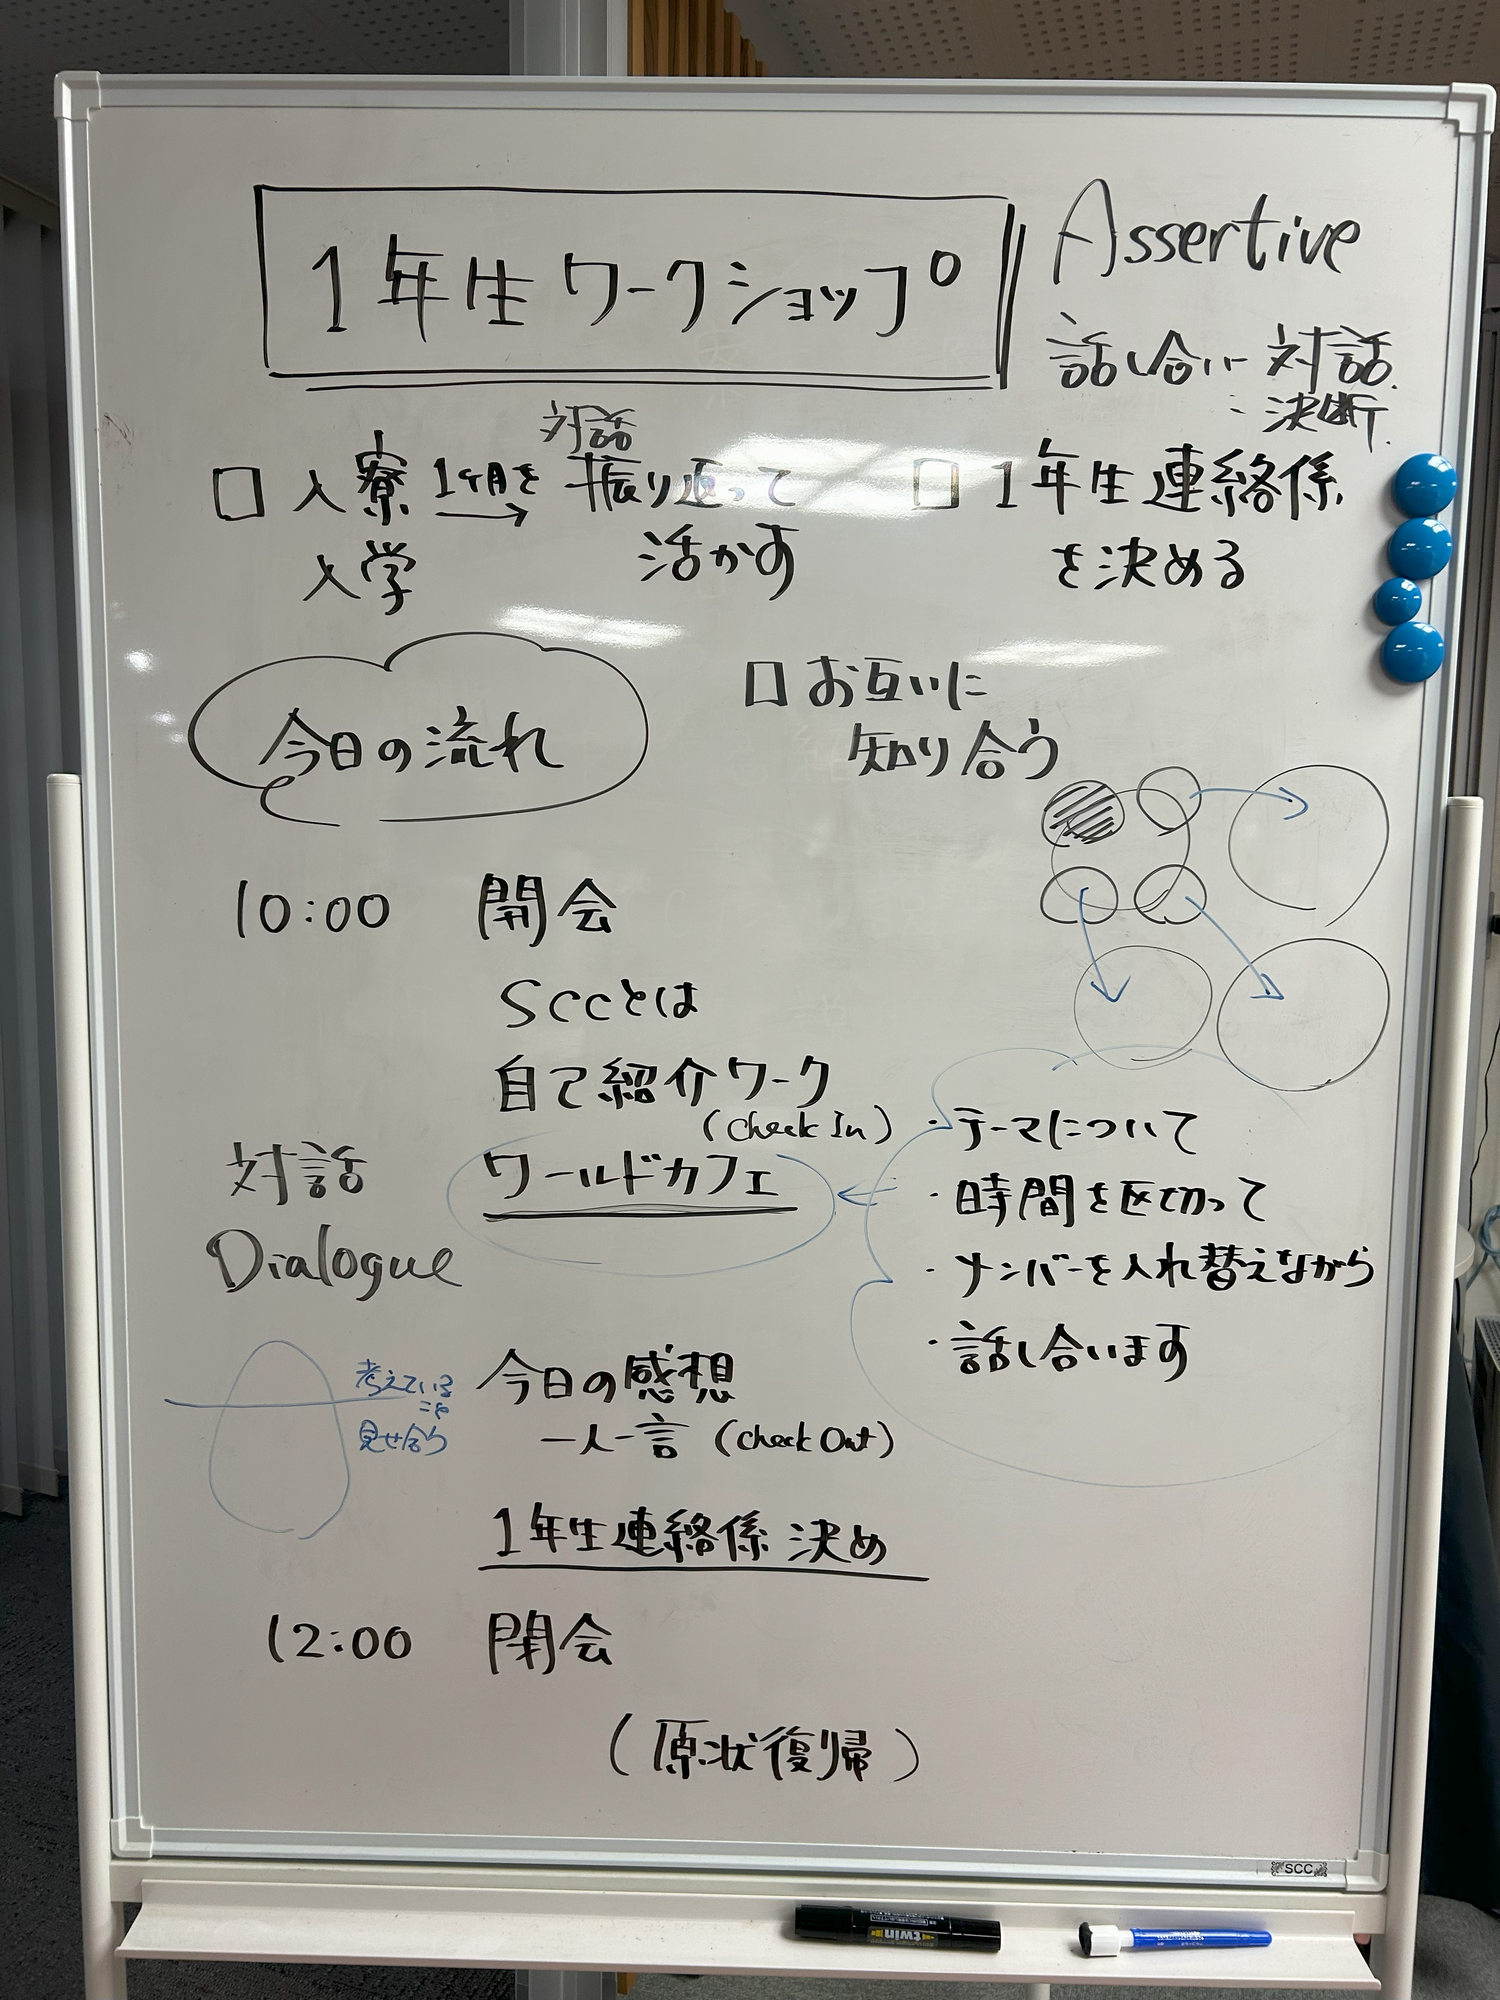 1年生ワークショップ
Assertive
話し合い 対話
: 決断
対話
□ 入寮 1ヶ月を → 振り返って
入学
活かす
□ 1年生連絡係
を決める
今日の流れ
□ お互いに
知り合う
10:00 開会
SCCとは
自己紹介ワーク
(check In)
対話
Dialogue
ワールドカフェ
・テーマについて
・時間を区切って
・メンバーを入れ替えながら
・話し合います
考えている
こと
見せ合う
今日の感想
一人一言 (check Out)
1年生連絡係 決め
12:00 閉会
(原状復帰)
SCC
twin